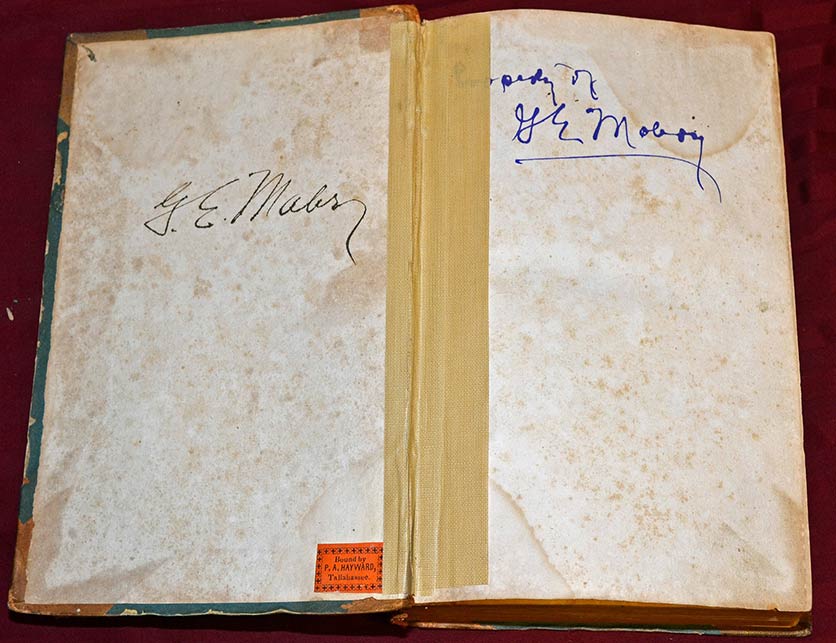 G. E. Mabry
Property of
G E Mabry
Bound by
P. A. HAYWARD,
Tallahassee.